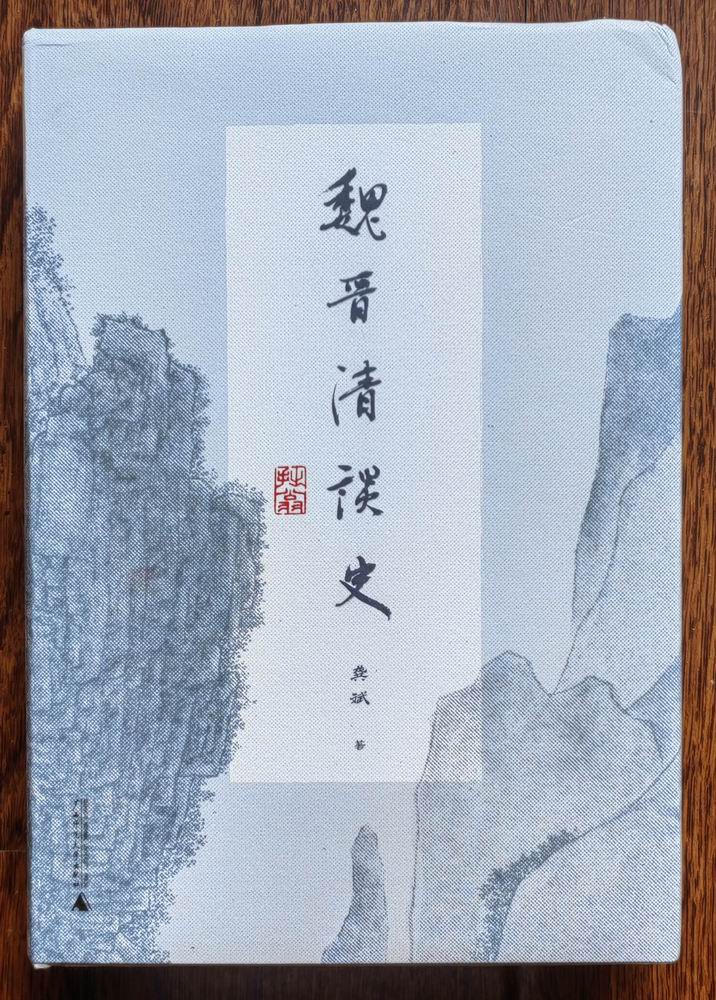 魏晋清談史
龚斌
著